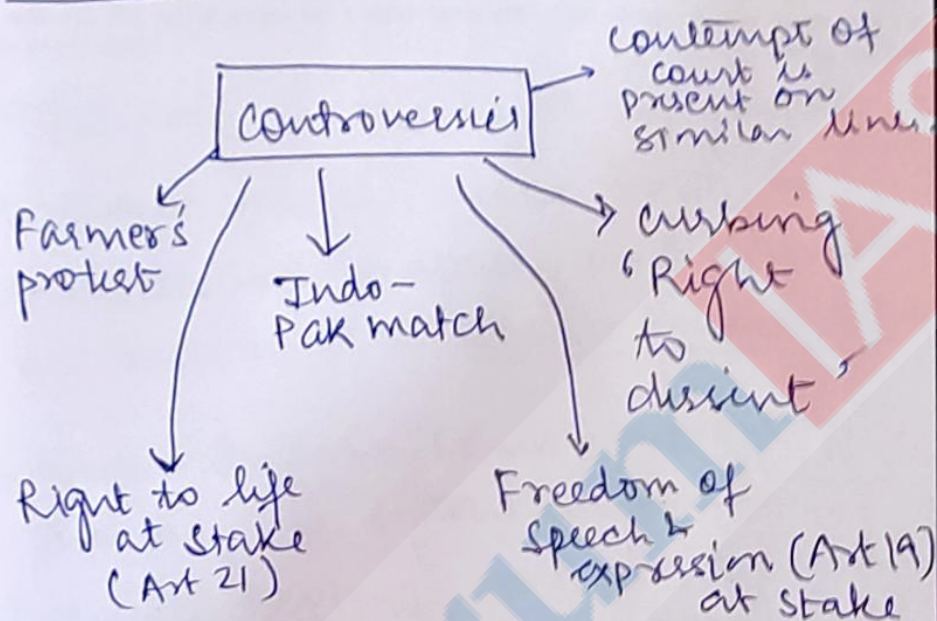 Controversies
contempt of
court is
present on
similar lines.
Farmer's
protest
Indo-
Pak match
curbing
'Right
to
dissent'
Right to life
at stake
(Art 21)
Freedom of
speech &
expression (Art 19)
at stake